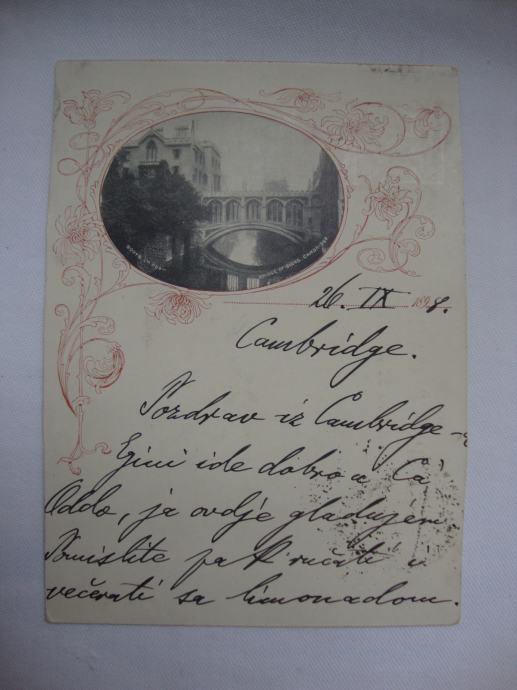 BRIDGE OF SIGHS, CAMBRIDGE
26. IX 1898.
Cambridge.
Pozdrav iz Cambridge-a
Egini ide dobro a
Oddo, ja ovdje gladujem.
Pomislite pak ručati i
večerati sa limonadom.